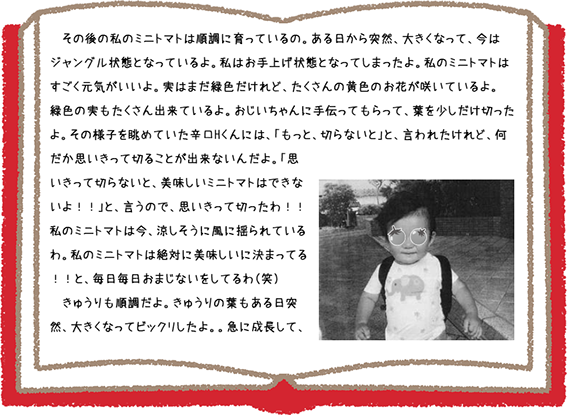 その後の私のミニトマトは順調に育っているの。ある日から突然、大きくなって、今は
ジャングル状態となっているよ。私はお手上げ状態となってしまったよ。私のミニトマトは
すごく元気がいいよ。実はまだ緑色だけれど、たくさんの黄色のお花が咲いているよ。
緑色の実もたくさん出来ているよ。おじいちゃんに手伝ってもらって、葉を少しだけ切った
よ。その様子を眺めていた辛口Hくんには、「もっと、切らないと」と、言われたけれど、何
だか思いきって切ることが出来ないんだよ。「思
いきって切らないと、美味しいミニトマトはできな
いよ！！」と、言うので、思いきって切ったわ！！
私のミニトマトは今、涼しそうに風に揺られている
わ。私のミニトマトは絶対に美味しいに決まってる
！！と、毎日毎日おまじないをしてるわ(笑)
きゅうりも順調だよ。きゅうりの葉もある日突
然、大きくなってビックリしたよ。。急に成長して、